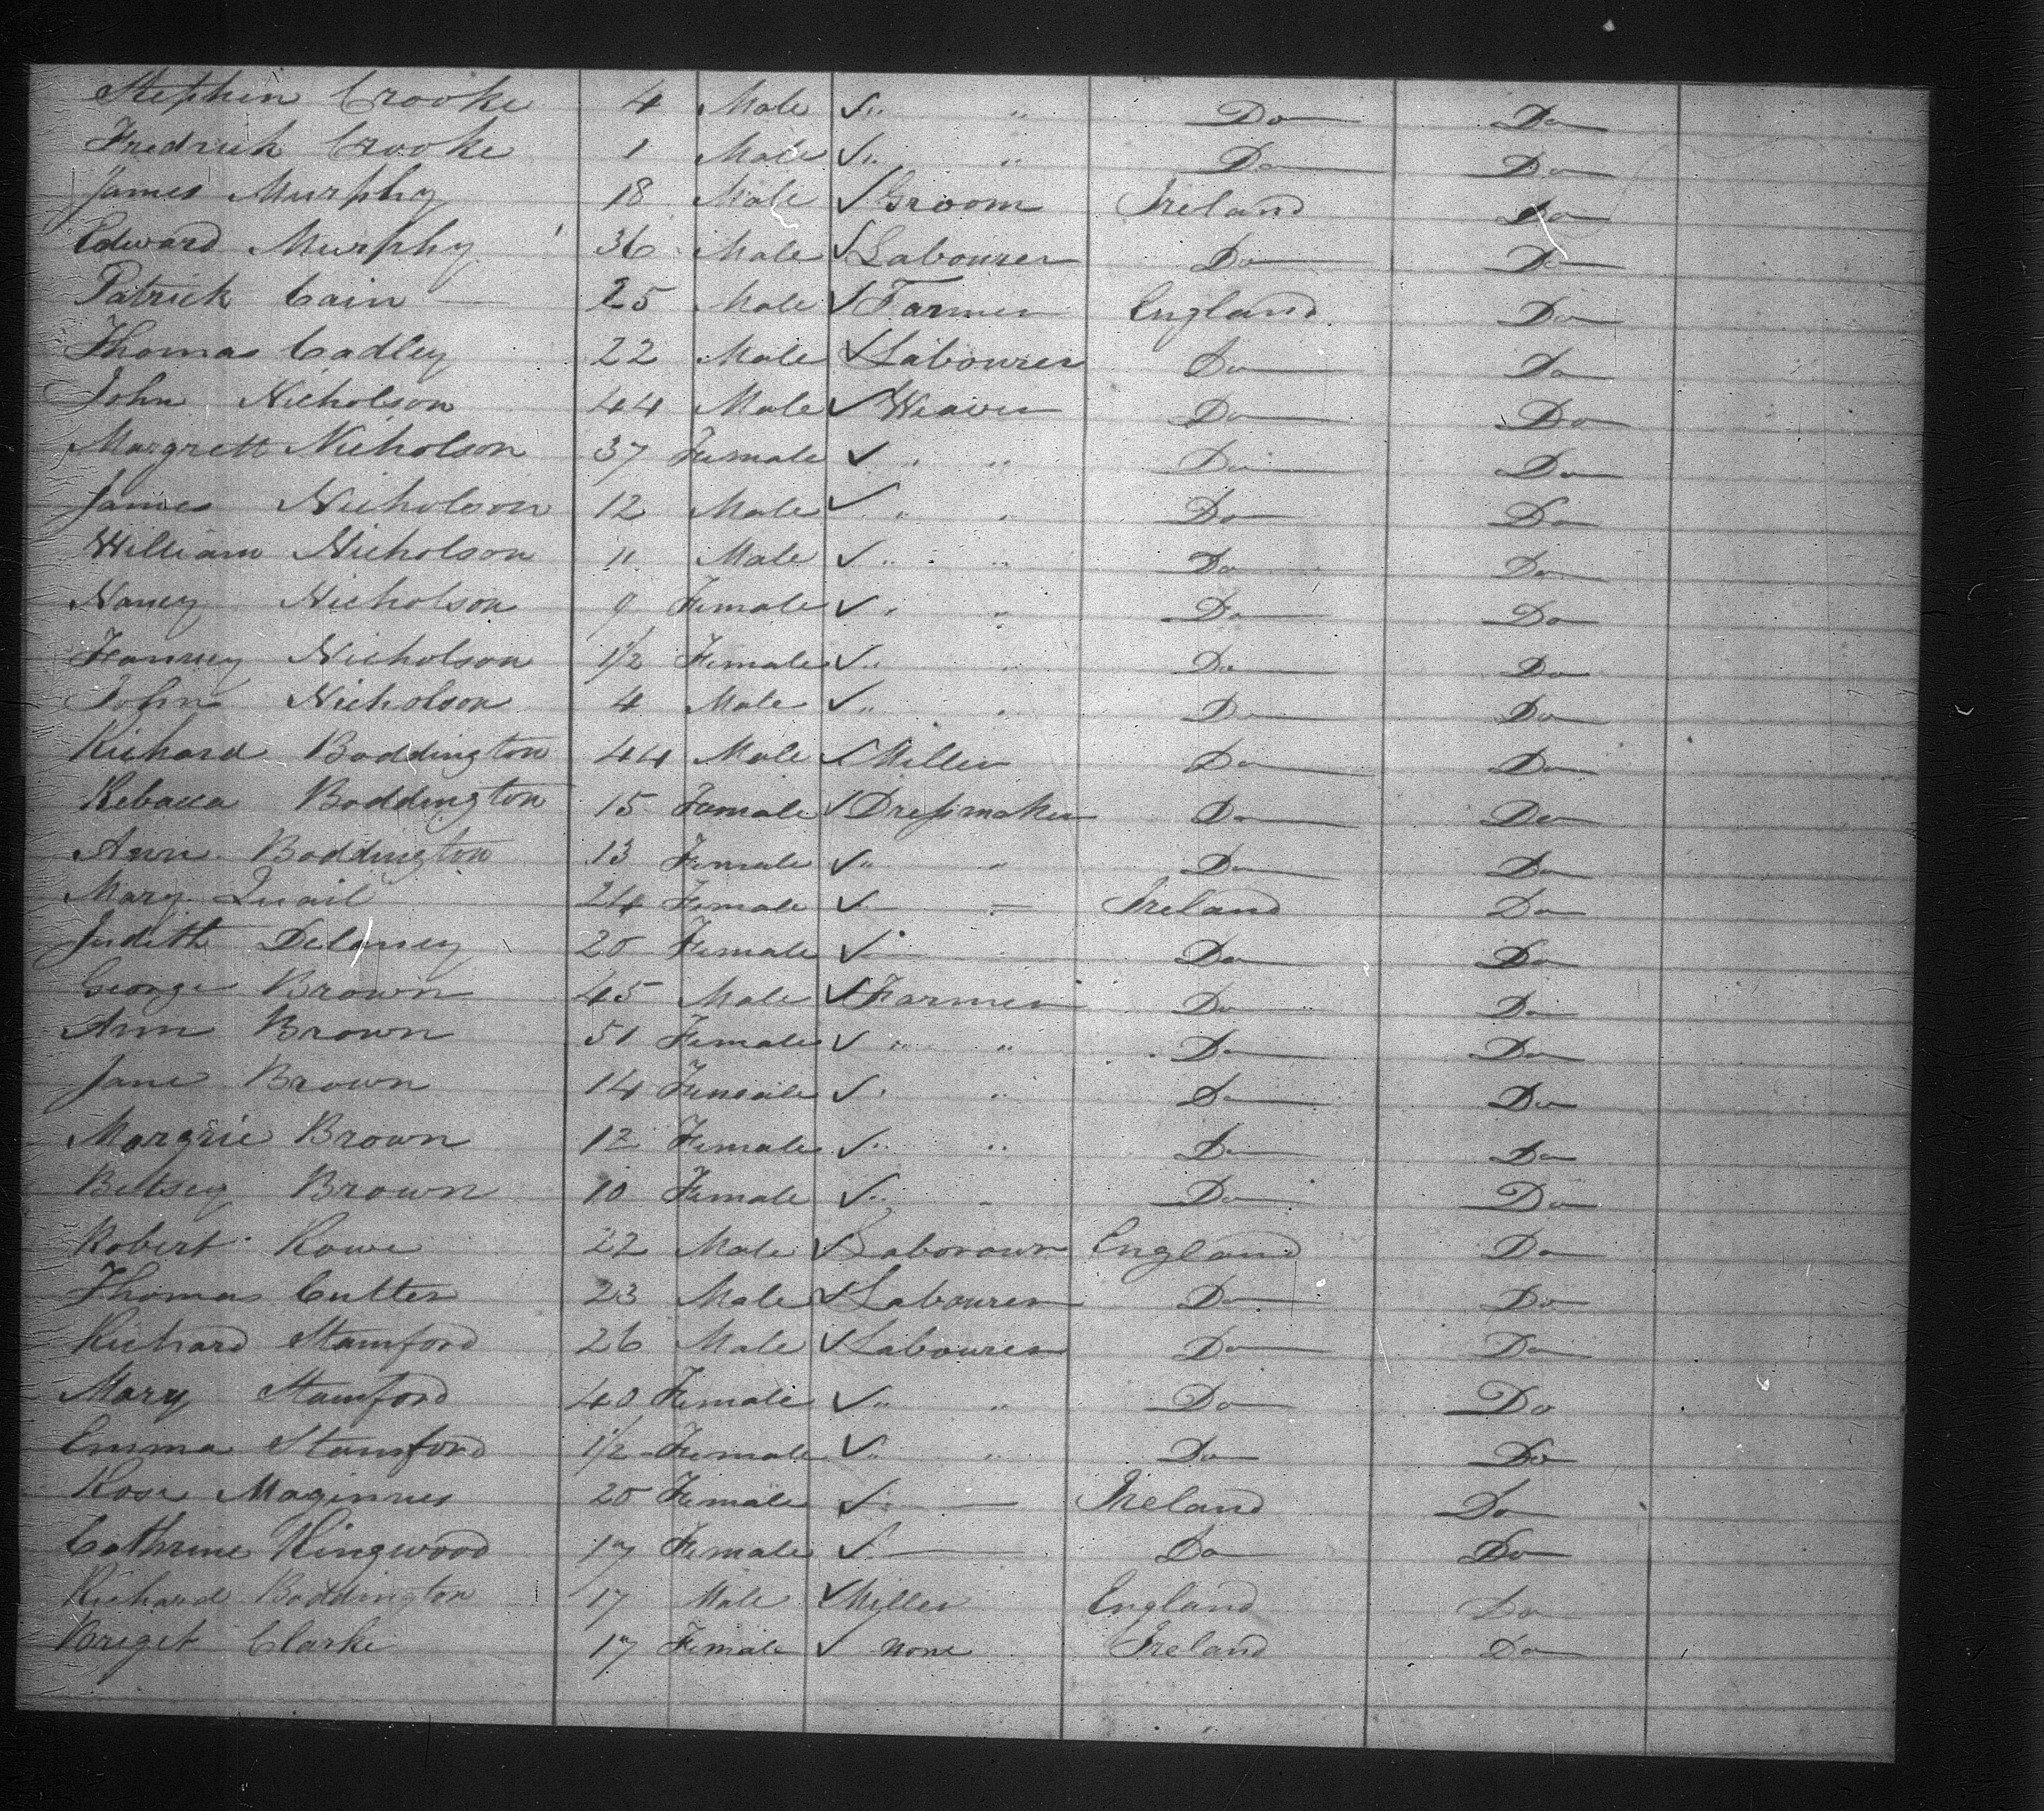 Stephen Crooke 4 Male ✓ " " Do Do
Fredrick Crooke 1 Male ✓ " " Do Do
James Murphy 18 Male ✓ Groom Ireland Do
Edward Murphy 36 Male ✓ Labourer Do Do
Patrick Cain 25 Male ✓ Farmer England Do
Thomas Cadley 22 Male ✓ Labourer Do Do
John Nicholson 44 Male ✓ Weaver Do Do
Margrett Nicholson 37 Female ✓ " " Do Do
James Nicholson 12 Male ✓ " " Do Do
William Nicholson 11 Male ✓ " " Do Do
Nancy Nicholson 9 Female ✓ " " Do Do
Fanney Nicholson 1/2 Female ✓ " " Do Do
John Nicholson 4 Male ✓ " " Do Do
Richard Boddington 44 Male ✓ Miller Do Do
Rebacca Boddington 15 Female ✓ Dressmaker Do Do
Ann Boddington 13 Female ✓ " " Do Do
Mary Quail 24 Female ✓ " Ireland Do
Judith Delaney 20 Female ✓ " Do Do
George Brown 45 Male ✓ Farmer Do Do
Ann Brown 51 Female ✓ " " Do Do
Jane Brown 14 Female ✓ " " Do Do
Margrie Brown 12 Female ✓ " " Do Do
Betsey Brown 10 Female ✓ " " Do Do
Robert Rowe 22 Male ✓ England Do
Thomas Cutter 23 Male ✓ Labourer Do Do
Richard Stamford 26 Male ✓ Labourer Do Do
Mary Stamford 40 Female ✓ " " Do Do
Emma Stamford 1/2 Female ✓ " " Do Do
Rose Maginnes 20 Female ✓ Ireland Do
Cathrine Kingwood 17 Female ✓ Do Do
Richard Boddington 17 Male ✓ Miller England Do
Briget Clarke 17 Female ✓ None Ireland Do